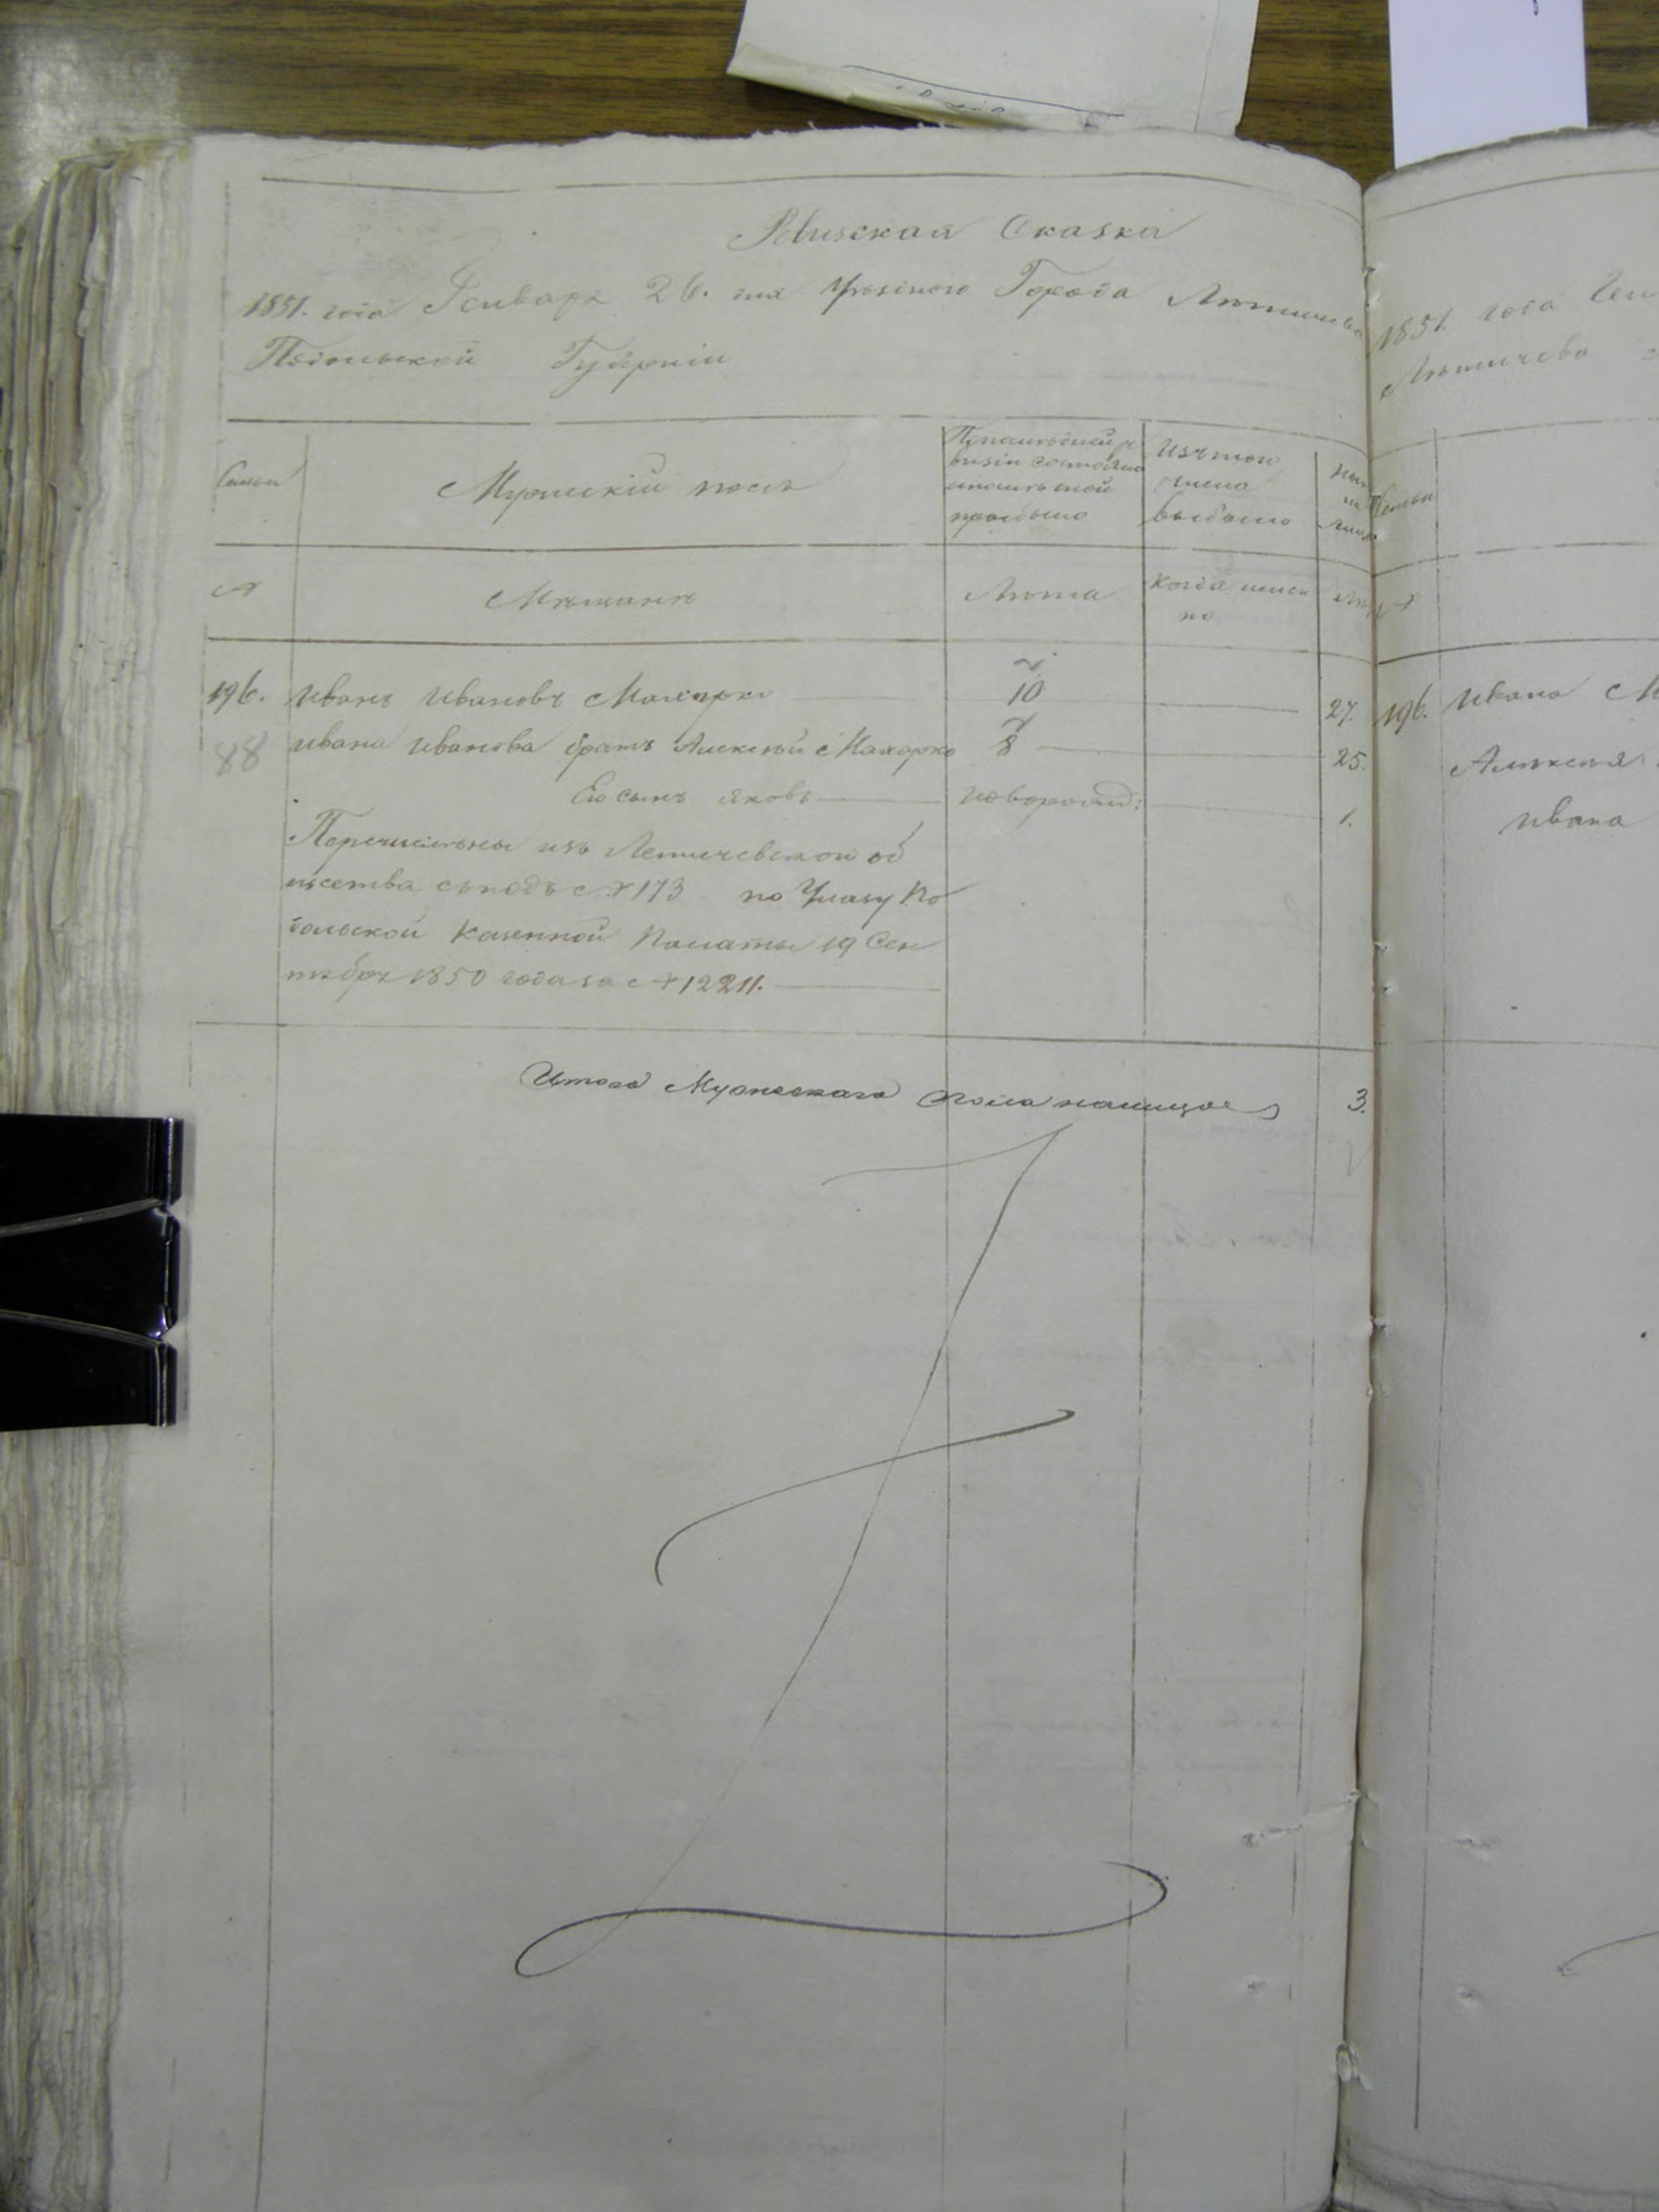 Ревизская Сказка
1851. года Генваря 26. дня Уѣзднаго Города Лѣтичева
Подольской Губерніи
Семьи
Мужескій полъ
По послѣдней ревизіи состояло и послѣ оной прибыло
Изъ того числа выбыло
Нынѣ на лицо
№
Мѣщанъ
Лѣта
Когда именно
Лѣта
196. Иванъ Ивановъ Махарко 10 27.
88 Ивана Иванова братъ Алексѣй Махарко 8 25.
Его сынъ Яковъ новорожд: 1.
Перечислены изъ Летичевского об
щества съ подъ № 173 по Указу По
дольской Казенной Палаты 19 Сен
тября 1850 года за № 12211.
Итого Мужескаго пола налицо 3.
1851. года Ген
Лѣтичева
Семьи
№
196. Ивана М
Алексѣя
Ивана